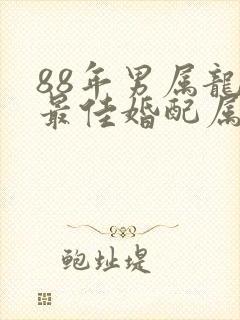 88年男属龍
最佳婚配属
鲍址堤